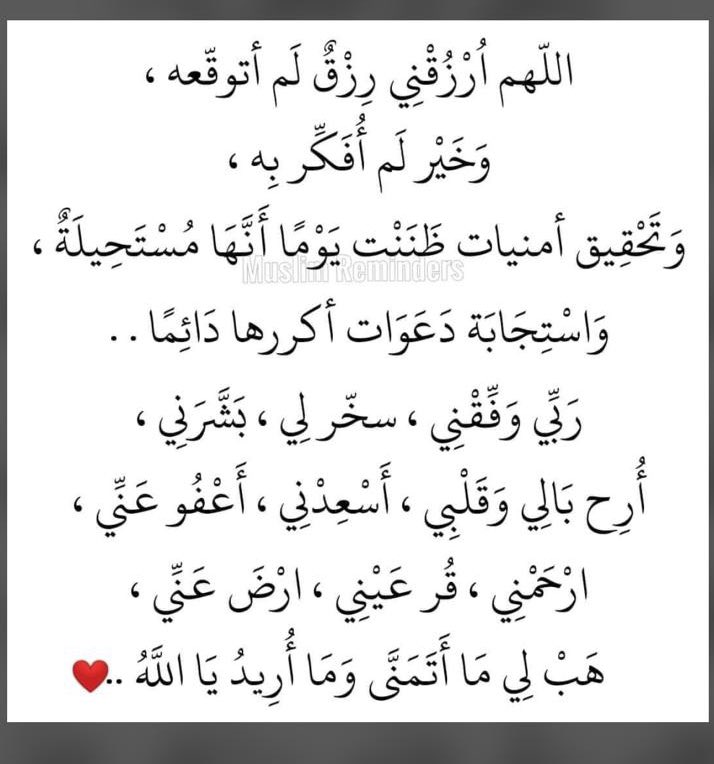 اللّهم اُرْزُقْنِي رِزْقٌ لَم أتوقّعه ،
وَخَيْر لَم أُفَكِّر بِه ،
وَتَحْقِيق أمنيات ظَنَنْت يَوْمًا أَنَّهَا مُسْتَحِيلَةٌ ،
Muslim Reminders
وَاسْتِجَابَة دَعَوَات أكررها دَائِمًا . .
رَبِّي وَفِّقْنِي ، سخّر لِي ، بَشَّرَنِي ،
أُرِح بَالِي وَقَلْبِي ، أَسْعِدْنِي ، أَعْفُو عَنِّي ،
ارْحَمْنِي ، قُر عَيْنِي ، ارْضَ عَنِّي ،
هَبْ لِي مَا أَتَمَنَّى وَمَا أُرِيدُ يَا اللَّهُ ..❤️